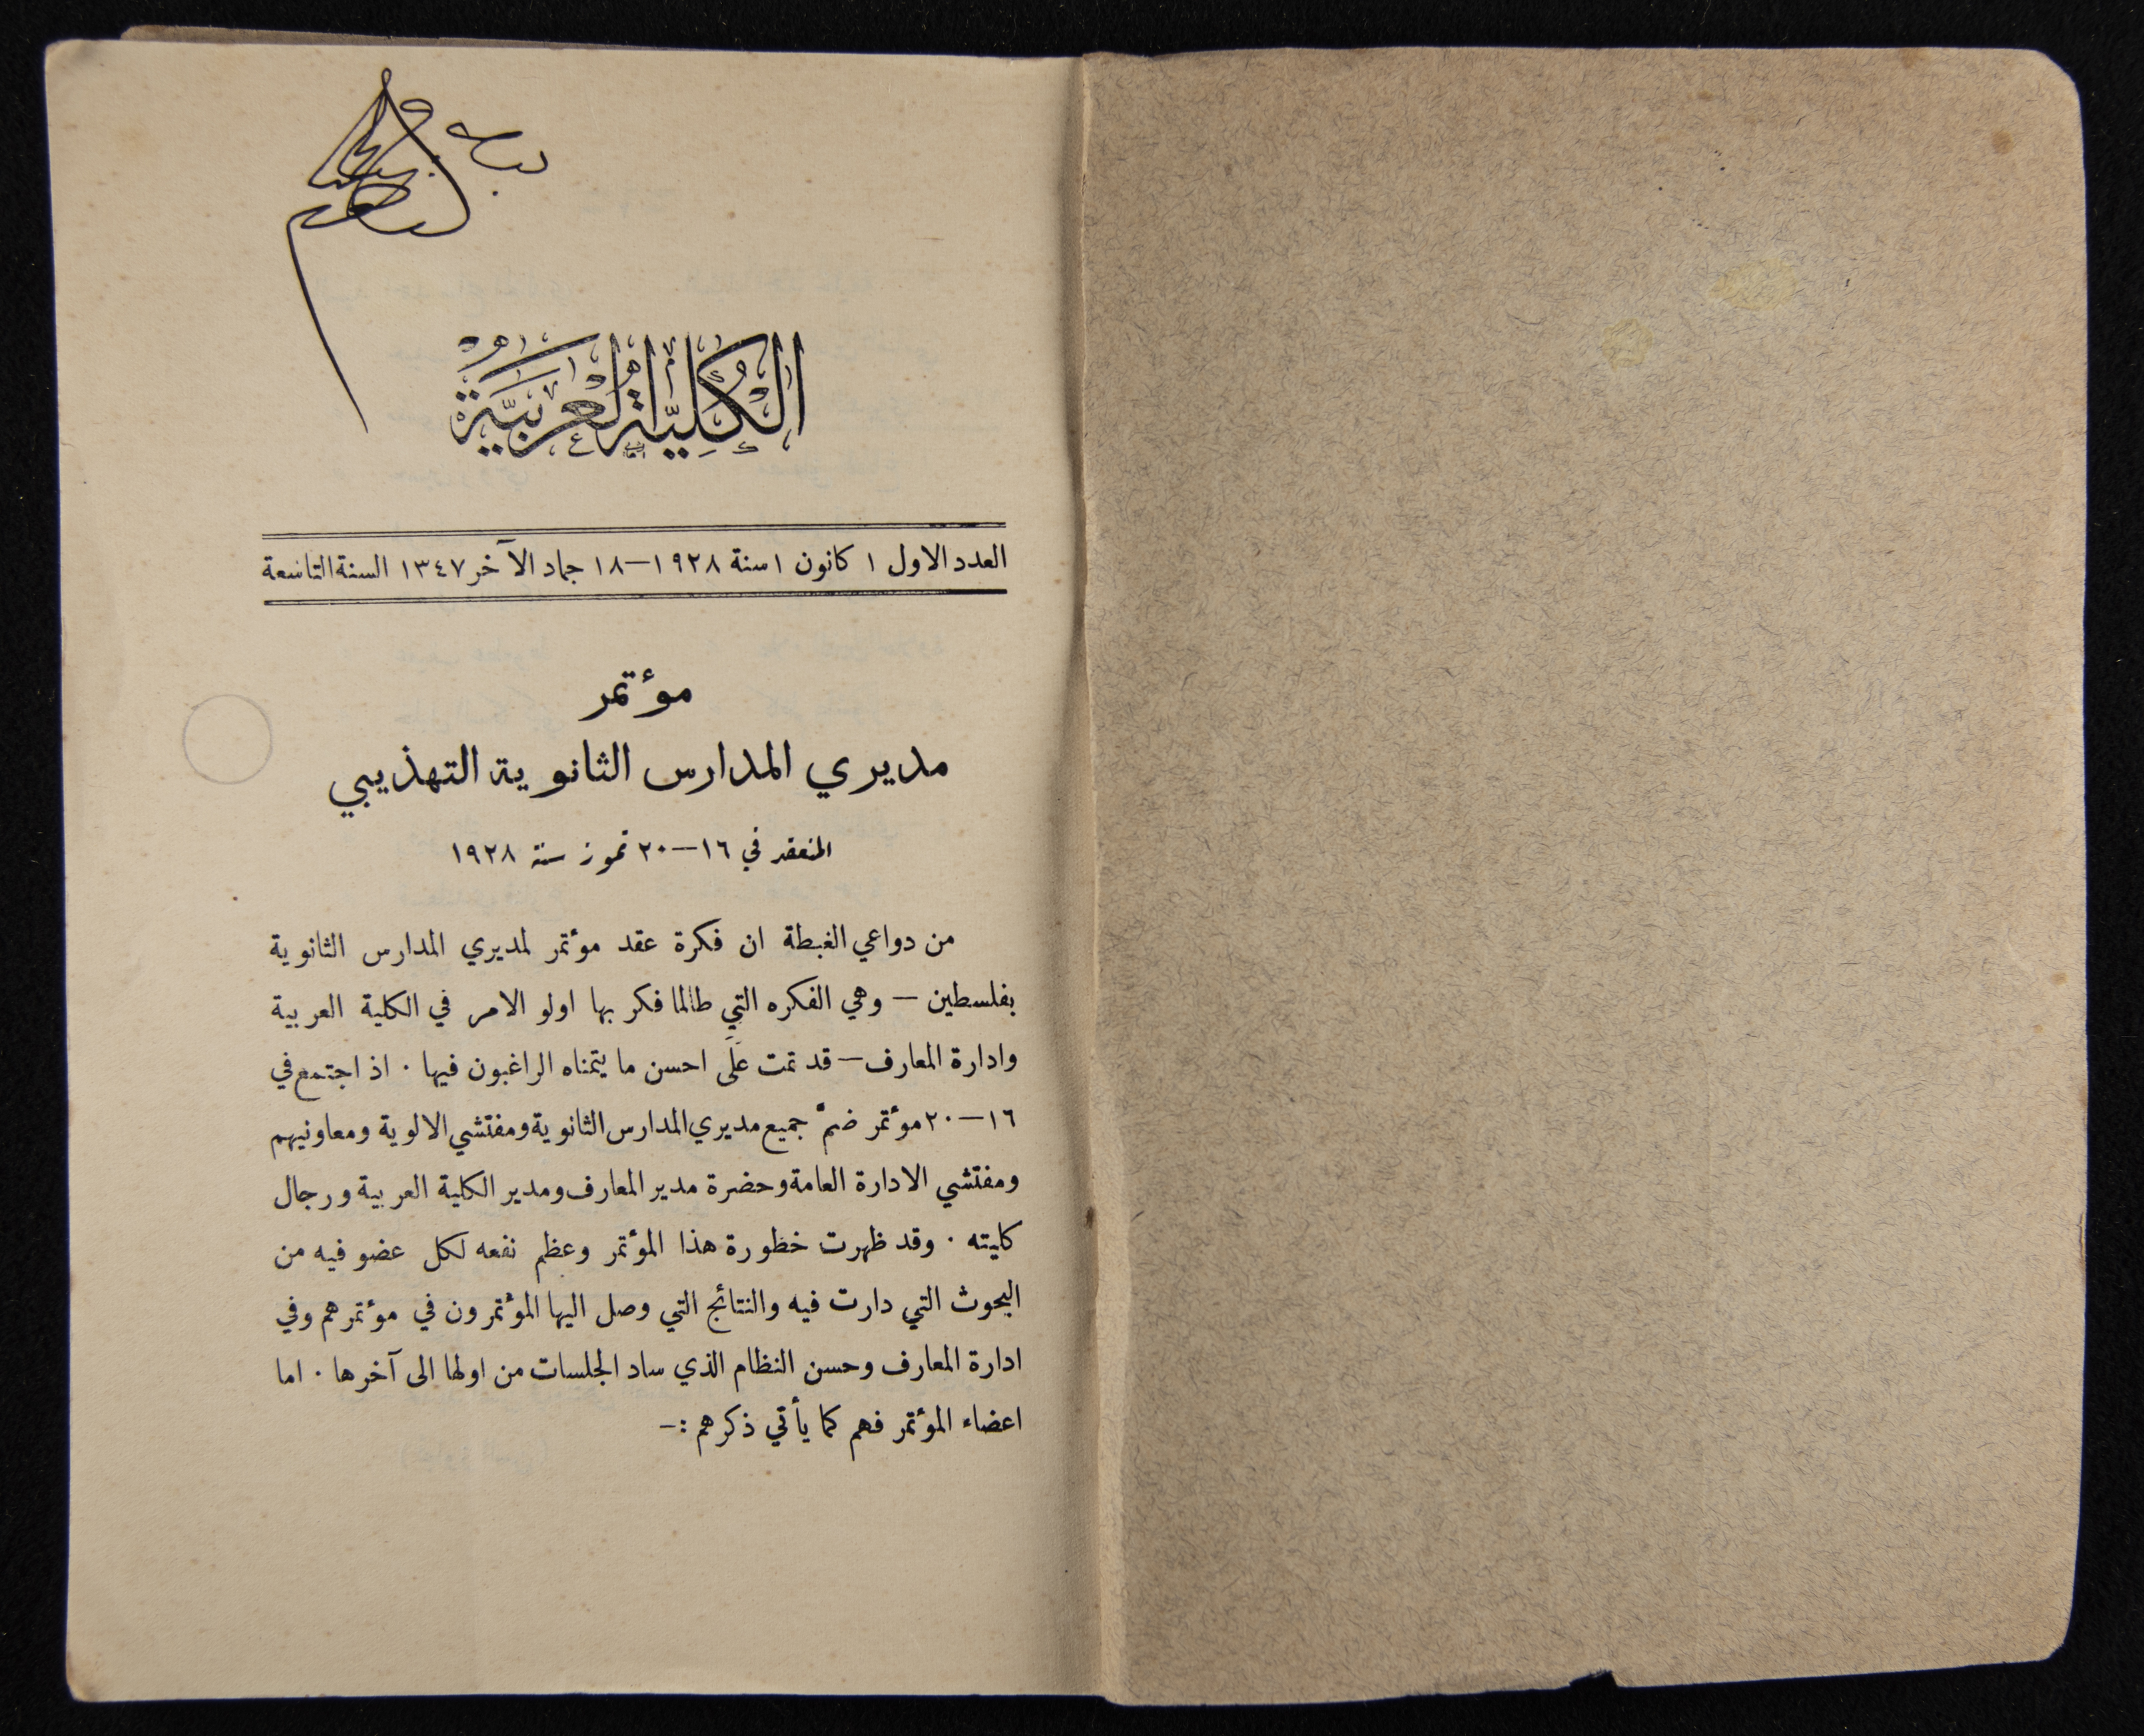 الكُلِّيَّة العَرَبِيَّة
العدد الاول ١ كانون ١ سنة ١٩٢٨—١٨ جماد الآخر ١٣٤٧ السنة التاسعة
مؤتمر
مديري المدارس الثانوية التهذيبي
المنعقد في ١٦—٢٠ تموز سنة ١٩٢٨
من دواعي الغبطة ان فكرة عقد مؤتمر لمديري المدارس الثانوية
بفلسطين — وهي الفكره التي طالما فكر بها اولو الامر في الكلية العربية
وادارة المعارف — قد تمت على احسن ما يتمناه الراغبون فيها . اذ اجتمع في
١٦—٢٠ مؤتمر ضمّ جميع مديري المدارس الثانوية ومفتشي الالوية ومعاونيهم
ومفتشي الادارة العامة وحضرة مدير المعارف ومدير الكلية العربية ورجال
كليته . وقد ظهرت خظورة هذا المؤتمر وعظم نفعه لكل عضو فيه من
البحوث التي دارت فيه والنتائج التي وصل اليها المؤتمرون في مؤتمرهم وفي
ادارة المعارف وحسن النظام الذي ساد الجلسات من اولها الى آخرها . اما
اعضاء المؤتمر فهم كما يأتي ذكرهم :—